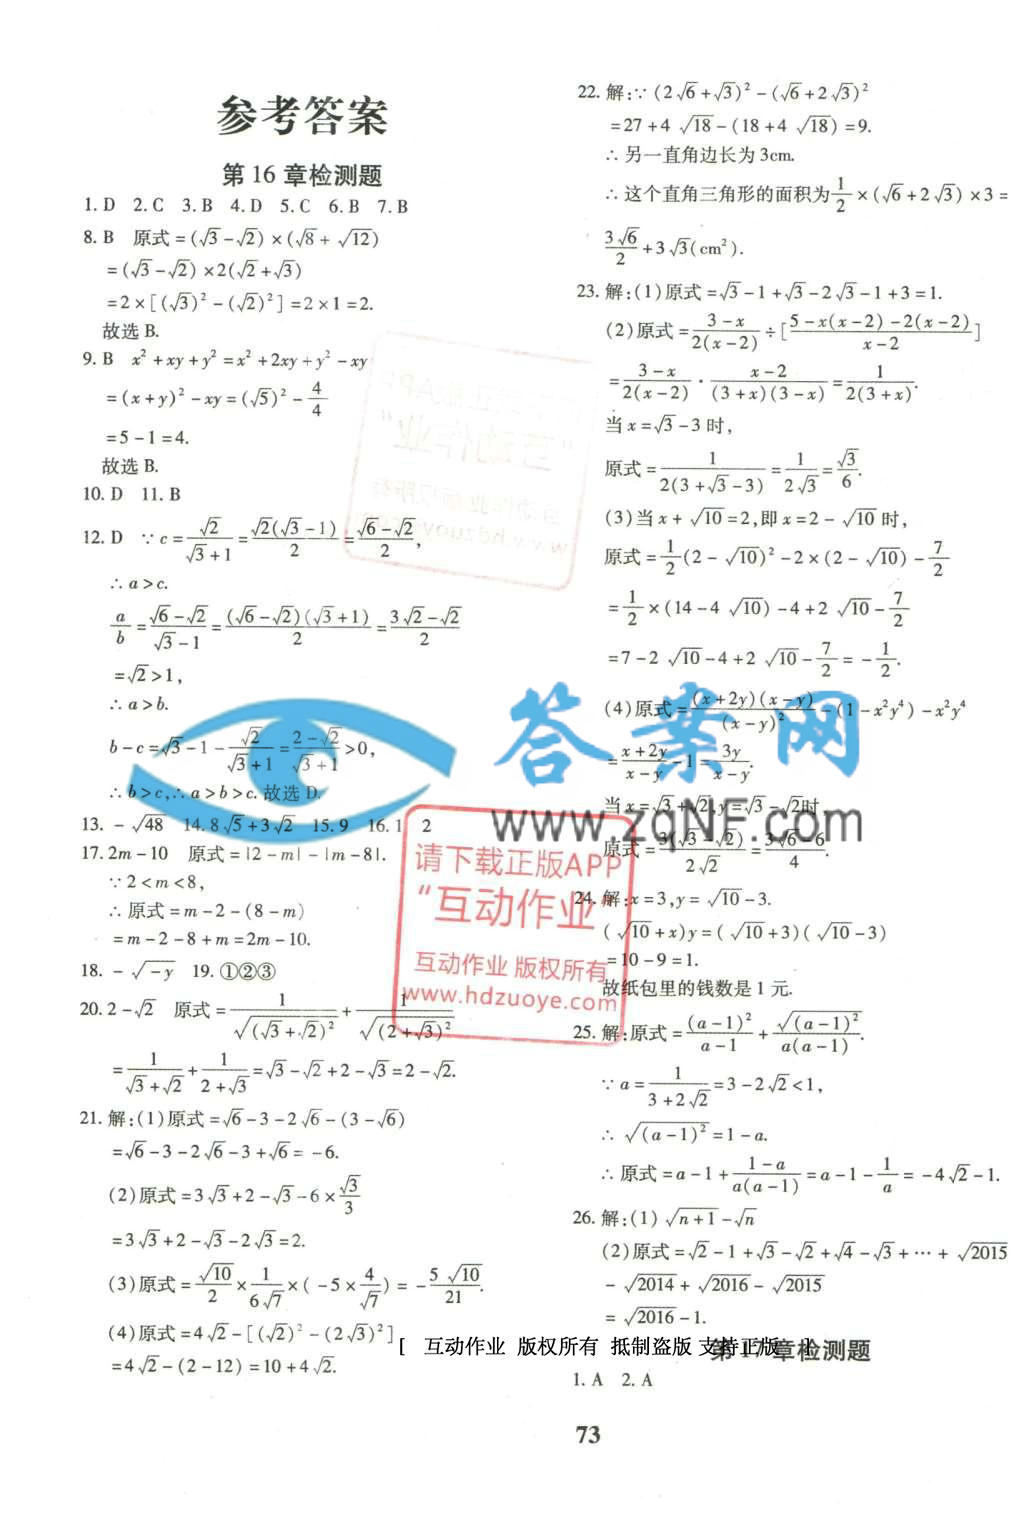 参考答案
第 16 章检测题
1. D 2. C 3. B 4. D 5. C 6. B 7. B
8. B 原式=(√3-√2)×(√8+√12)
=(√3-√2)×2(√2+√3)
=2×[(√3)²-(√2)²]=2×1=2.
故选 B.
9. B x²+xy+y²=x²+2xy+y²-xy
=(x+y)²-xy=(√5)²-4/4
=5-1=4.
故选 B.
10. D 11. B
12. D ∵c=√2/(√3+1)=√2(√3-1)/2=(√6-√2)/2,
∴a>c.
a/b=(√6-√2)/(√3-1)=(√6-√2)(√3+1)/2=(3√2-√2)/2
=√2>1,
∴a>b.
b-c=√3-1-√2/(√3+1)=(2-√2)/(√3+1)>0,
∴b>c,∴a>b>c.故选 D.
13. -√48 14. 8√5+3√2 15. 9 16. 1 2
17. 2m-10 原式=|2-m|-|m-8|.
∵2<m<8,
∴原式=m-2-(8-m)
=m-2-8+m=2m-10.
18. -√-y 19. ①②③
20. 2-√2 原式=1/√(√3+√2)²+1/√(2+√3)²
=1/(√3+√2)+1/(2+√3)=√3-√2+2-√3=2-√2.
21. 解:(1)原式=√6-3-2√6-(3-√6)
=√6-3-2√6-3+√6=-6.
(2)原式=3√3+2-√3-6×√3/3
=3√3+2-√3-2√3=2.
(3)原式=√10/2×1/(6√7)×(-5×4/√7)=-5√10/21.
(4)原式=4√2-[(√2)²-(2√3)²]
=4√2-(2-12)=10+4√2.
22. 解:∵(2√6+√3)²-(√6+2√3)²
=27+4√18-(18+4√18)=9.
∴另一直角边长为 3cm.
∴这个直角三角形的面积为1/2×(√6+2√3)×3=
3√6/2+3√3(cm²).
23. 解:(1)原式=√3-1+√3-2√3-1+3=1.
(2)原式=(3-x)/2(x-2)÷[(5-x(x-2)-2(x-2))/(x-2)]
=(3-x)/2(x-2)·(x-2)/(3+x)(3-x)=1/2(3+x).
当 x=√3-3 时,
原式=1/2(3+√3-3)=1/(2√3)=√3/6.
(3)当 x+√10=2,即 x=2-√10时,
原式=1/2(2-√10)²-2×(2-√10)-7/2
=1/2×(14-4√10)-4+2√10-7/2
=7-2√10-4+2√10-7/2=-1/2.
(4)原式=(x+2y)(x-y)/(x-y)²-(1-x²y⁴)-x²y⁴
=(x+2y)/(x-y)-1=3y/(x-y).
当 x=√3+√2,y=√3-√2时,
原式=3(√3-√2)/(2√2)=(3√6-6)/4.
24. 解:x=3,y=√10-3.
(√10+x)y=(√10+3)(√10-3)
=10-9=1.
故纸包里的钱数是 1 元.
25. 解:原式=(a-1)²/(a-1)+√(a-1)²/a(a-1).
∵a=1/(3+2√2)=3-2√2<1,
∴√(a-1)²=1-a.
∴原式=a-1+(1-a)/a(a-1)=a-1-1/a=-4√2-1.
26. 解:(1)√(n+1)-√n
(2)原式=√2-1+√3-√2+√4-√3+…+√2015
-√2014+√2016-√2015
=√2016-1.
第 17 章检测题
1. A 2. A
73
答案网
www.zqNF.com
请下载正版APP
“互动作业”
互动作业 版权所有
www.hdzuoye.com
[ 互动作业 版权所有 抵制盗版 支持正版 ]